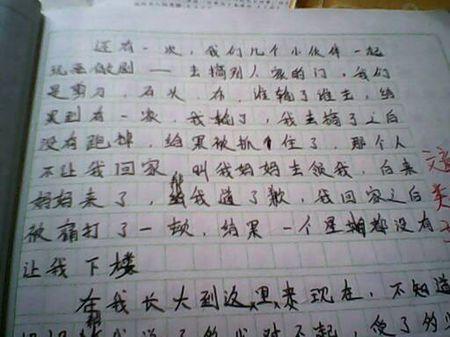 还有一次，我们几个小伙伴一起
玩恶做剧——去搞别人家的门，我们
是剪刀 石头 布，谁输了谁去，结
果到有一次，我输了，我去搞了之后
没有跑掉，结果被抓住了，那个人
不让我回家 叫我妈妈去领我，后来
妈妈来了，帮我道了歉，我回家之后
被痛打了一顿，结果一个星期都没有
让我下楼
在我长大到这里来现在，不知道